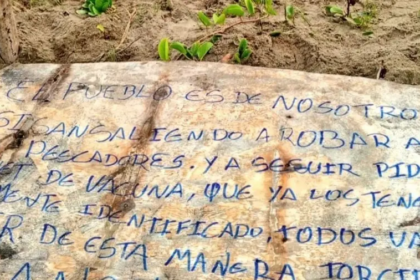 EL PUEBLO ES DE NOSOTRO
SIGANSALIENDO A ROBAR A
PESCADORES. Y A SEGUIR PID
DE VACUNA, QUE YA LOS TENE
MENTE IDENTIFICADO, TODOS VA
R DE ESTA MANERA TORC